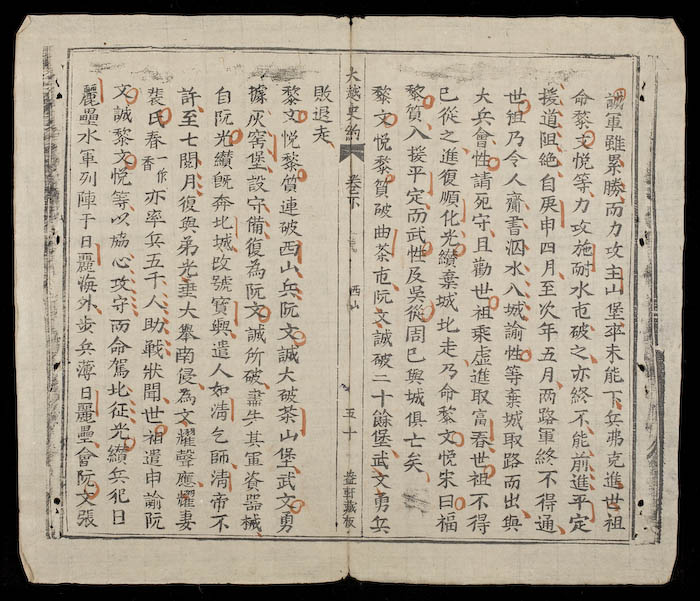 誠軍雖累勝而力攻主山堡率未能下兵弗克進世祖
命黎文悅等力攻施耐水屯破之亦終不能前進平定
援道阻絕自庚申四月至次年五月兩路軍終不得通
世祖乃令人齎書泅水入城諭性等棄城取路而出與
大兵會性請死守且勸世祖乘虛進取富春世祖不得
已從之進復順化光纘棄城北走乃命黎文悅宋曰福
黎質入援平定而武性及吳從周已與城俱亡矣
黎文悅黎質破曲茶屯阮文誠破二十餘堡武文勇兵
大越史約 卷下 西山 五十 軒藏板
敗退走
黎文悅黎質連破西山兵阮文誠大破茶山堡武文勇
據灰窖堡設守備復為阮文誠所破盡失其軍資器械
自阮光纘既奔北城改號寶興遣人如清乞師清帝不
許至七閏月復與弟光垂大舉南侵為文耀聲應耀妻
裴氏春一作香亦率兵五千人助戰狀聞世祖遣申諭阮
文誠黎文悅等以協心攻守而命駕北征光纘兵犯日
麗壘水軍列陣于日麗海外步兵薄日麗壘會阮文張